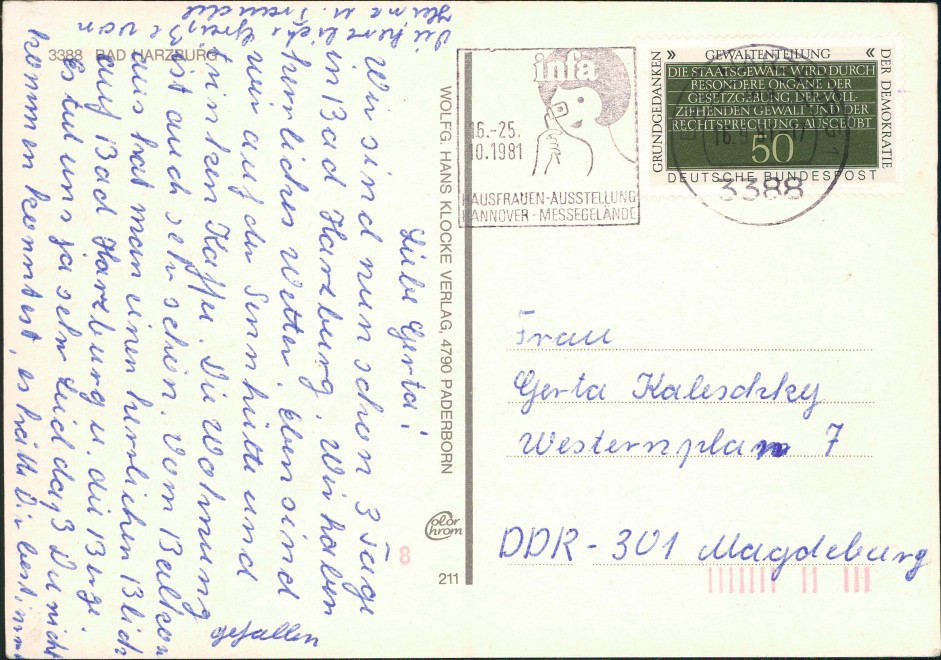 3388 BAD HARZBURG
Liebe Gerta!
Wir sind nun schon 3 Tage
in Bad Harzburg. Wir haben
herrliches Wetter, eben sind
wir auf der Sennhütte und
trinken Kaffee. Die Wohnung
ist auch sehr schön. Vom Balkon
aus hat man einen herrlichen Blick
auf Bad Harzburg u. die Berge.
Es tut uns ja sehr Leid daß Du nicht
kommen konntest, es hätte Dir bestimmt
gefallen
die herzliche Grüße von
u. Traudel
WOLFG. HANS KLOCKE VERLAG, 4790 PADERBORN
Color
chrom
211
8
infa
16.-25.
10.1981
HAUSFRAUEN-AUSSTELLUNG
HANNOVER - MESSEGELÄNDE
GRUNDGEDANKEN
» GEWALTENTEILUNG «
DER DEMOKRATIE
DIE STAATSGEWALT WIRD DURCH
BESONDERE ORGANE DER
GESETZGEBUNG, DER VOLL-
ZIEHENDEN GEWALT UND DER
RECHTSPRECHUNG AUSGEÜBT
50
DEUTSCHE BUNDESPOST
3388
Frau
Gerta Kaleschky
Westernplan 7
DDR - 301 Magdeburg